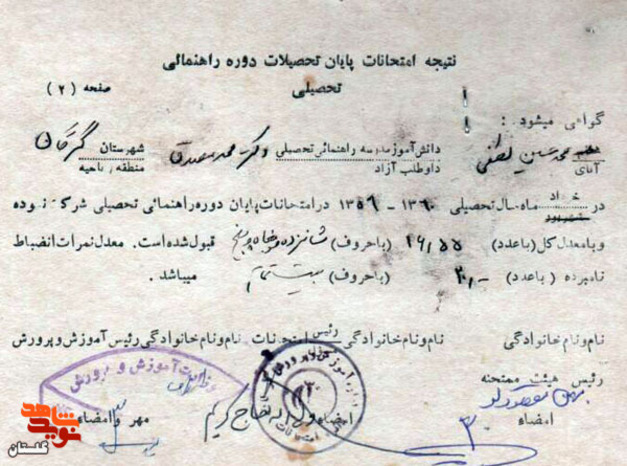 نتیجه امتحانات پایان تحصیلات دوره راهنمائی
تحصیلی
صفحه (۲)
گواهی میشود :
آقای محمد حسین لطفی دانش‌آموز مدرسه راهنمائی تحصیلی دکتر محمد مصدق شهرستان گرگان
داوطلب آزاد منطقه / ناحیه
در خرداد ماه سال تحصیلی ۱۳۶۰ - ۱۳۵۹ در امتحانات پایان دوره راهنمائی تحصیلی شرکت نموده
شهریور
و با معدل کل (باعدد) ۱۶٫۵۵ (باحروف) شانزده و پنجاه و پنج قبول شده است. معدل نمرات انضباط
نامبرده (باعدد) ۲۰٫- (باحروف) بیست تمام میباشد.
نام و نام خانوادگی نام و نام خانوادگی رئیس امتحانات نام و نام خانوادگی رئیس آموزش و پرورش
رئیس هیئت ممتحنه
امضاء امضاء مهر و امضاء
وزارت آموزش و پرورش
نوید شاهد
گلستان